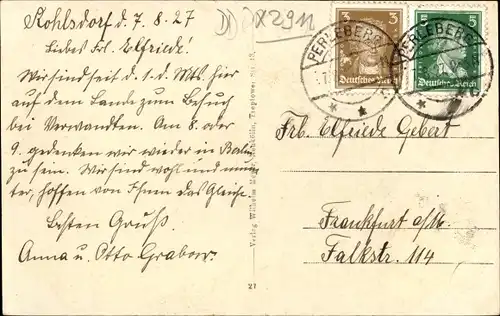 Kohlsdorf d. 7. 8. 27
Liebes Frl. Elfriede!
Wir sind seit d. 1. d. Mts. hier
auf dem Lande zum Besuch
bei Verwandten. Am 8. oder
9. gedenken wir wieder in Berlin
zu sein. Wir sind wohl und mun-
ter, hoffen von Ihnen das Gleiche.
Besten Gruß
Anna u. Otto Grabow.
X2911
Verlag Wilhelm
27
3 3
Deutsches Reich
5 5
Deutsches Reich
PERLEBERG
PERLEBERG
Frl. Elfriede Gebert
Frankfurt a/M.
Falkstr. 114